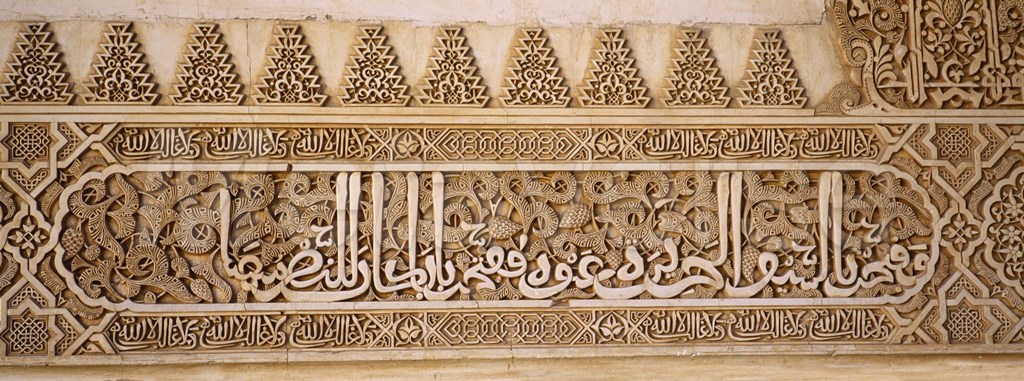 ولا غالب إلا الله ولا غالب إلا الله ولا غالب إلا الله ولا غالب إلا الله ولا غالب إلا الله ولا غالب إلا الله
وفتحت بالسيف الجزيرة عنوة ففتحت بابا كان للنصر مبهما
ولا غالب إلا الله ولا غالب إلا الله ولا غالب إلا الله ولا غالب إلا الله ولا غالب إلا الله ولا غالب إلا الله